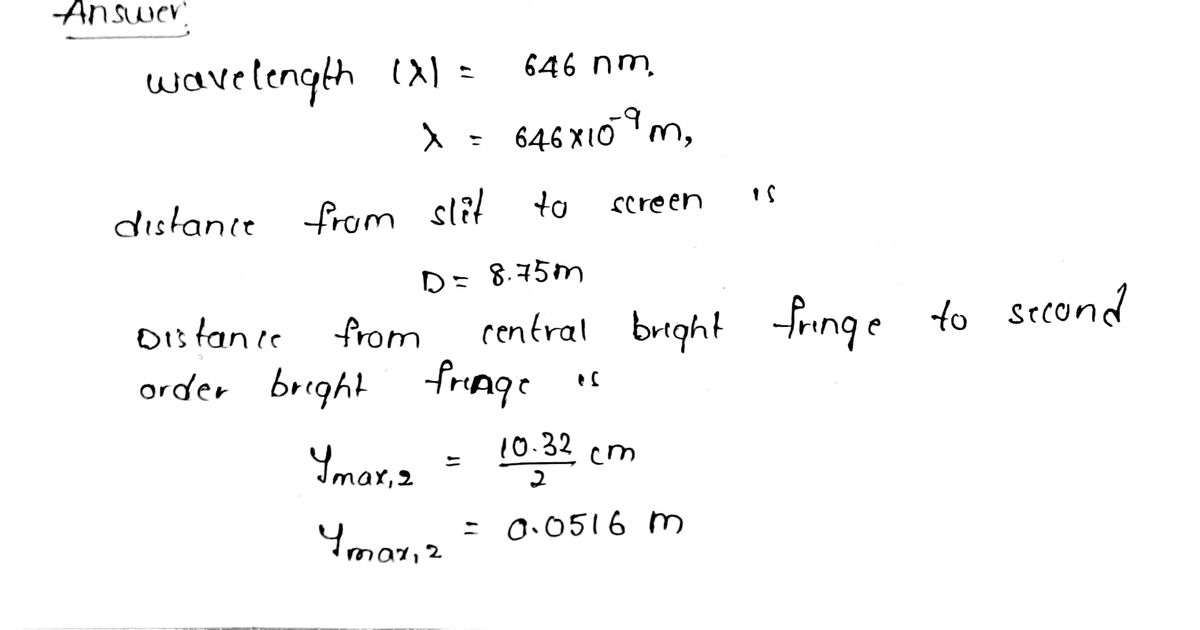 Answer:
wavelength (λ) = 646 nm.
λ = 646×10⁻⁹ m,
distance from slit to screen is
D = 8.75m
Distance from central bright fringe to second
order bright fringe is
Ymax,2 = 10.32/2 cm
Ymax,2 = 0.0516 m